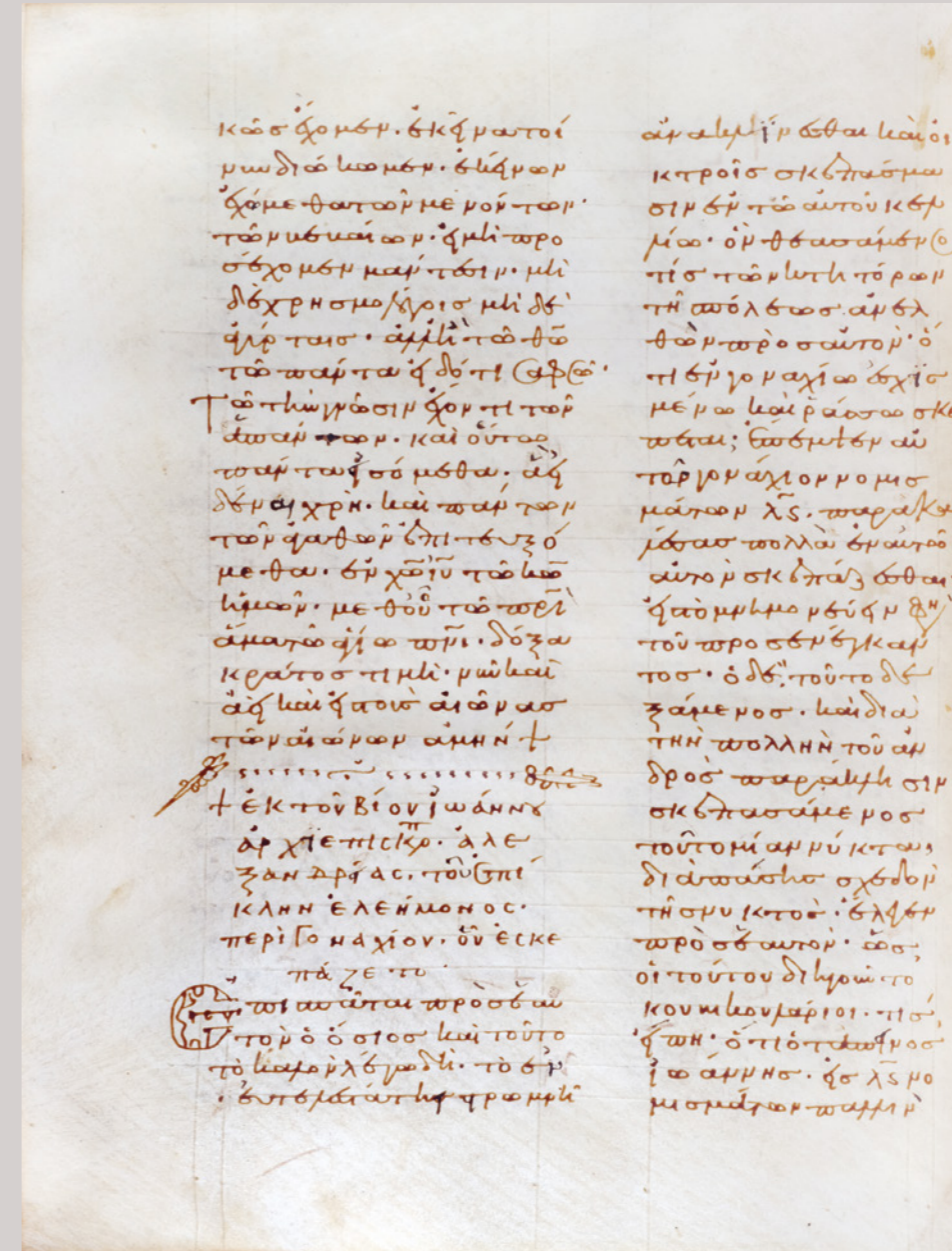 κῶς ἔχομεν. ἐκεῖνα τοί
νυν διώκωμεν. ἐκείνων
ἐχόμεθα τῶν μενόντων.
τῶν εἰ μὴ προ
σέχομεν μάντεσιν. μὴ
δὲ χρησμολόγοις μὴ δὲ
ἀγύρταις. ἀλλὰ τῶ θῶ
τῶ πάντα εἰδότι σαφῶς.
τῶ τὴν γνῶσιν ἔχοντι τῶν
ἁπάντων. καὶ οὕτω
πάντα εἰσόμεθα. ἃ εἰ
δέναι χρὴ. καὶ πάντων
τῶν ἀγαθῶν ἐπιτευξό
μεθα. ἐν χῶ ιῦ τῶ κῶ
ἡμῶν. μεθ οὗ τῶ πρὶ
ἅμα τῶ ἁγίω πνι. δόξα
κράτος τιμὴ. νῦν καὶ
ἀεὶ καὶ εἰς τοὺς αἰῶνας
τῶν αἰώνων ἀμήν +
+ ἐκ τοῦ βίου ἰωάννου
ἀρχιεπισκοπ. ἀλε
ξανδρίας. τοῦ ἐπί
κλην ἐλεήμονος.
περὶ γοναχίου. οὗ ἐσκε
πάζετο
πρὸς ἑαυ
τὸν ὁ ὅσιος καὶ τοῦτο
τὸ καλὸν λέγω δὴ. τὸ ἐν
εὐτελεστάτη στρωμνῆ
ἀνακλίνεσθαι καὶ οἰ
κτροῖς σκεπάσμα
σιν ἐν τῶ αὐτοῦ κελ
λίω. ὃν θεασάμενο
τίς τῶν κτητόρων
τῆ πόλεως ἀνελ
θὼν πρὸς αὐτὸν. ὅ
τι ἐν γοναχίω ἐσχισ
μένω καὶ ῥάσσω σκέ
πεται; ἔπεμψεν αὐ
τῶ γονάχιον νομισ
μάτων λς. παρακα
λέσας πολλὰ ἐν αὐτῶ
αὐτὸν σκεπάζεσθαι
εἰς τὸ μνημονεύειν
τοῦ προσενέγκαν
τος. ὁ δὲ, τοῦτο δε
ξάμενος. καὶ διὰ
τὴν πολλὴν τοῦ ἀν
δρὸς παράκλησιν
σκεπασάμενος
τοῦτο μίαν νύκτα,
διὰ πάσης σχεδὸν
τῆς νυκτὸς. ἔλεγεν
πρὸς ἑαυτὸν. ὡς
οἱ τούτου διηγοῦντο
κουνικουλάριοι. τίς
εἴπη. ὅτι ὁ ταπεινὸς
ἰωάννης. εἰς λς νο
μισμάτων παλλὶν